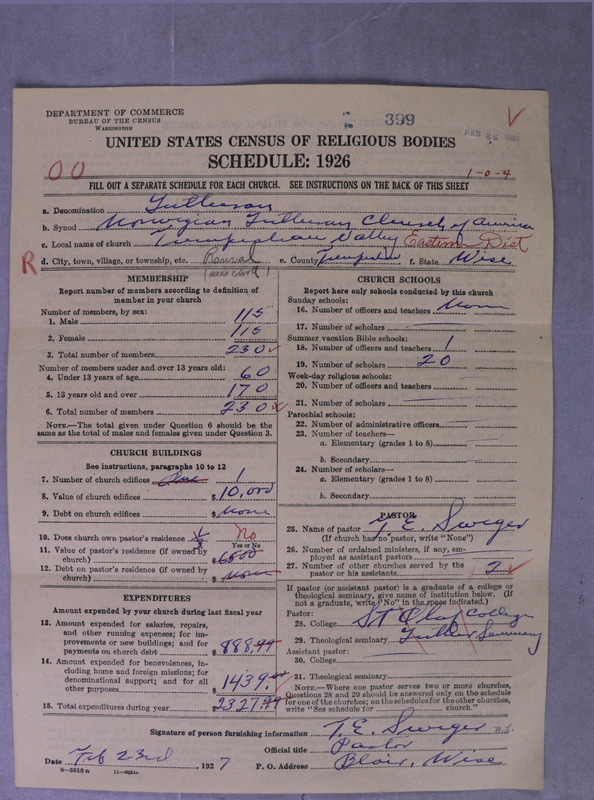 DEPARTMENT OF COMMERCE
BUREAU OF THE CENSUS
WASHINGTON
399
UNITED STATES CENSUS OF RELIGIOUS BODIES
SCHEDULE: 1926
OO
1-0-4
FILL OUT A SEPARATE SCHEDULE FOR EACH CHURCH. SEE INSTRUCTIONS ON THE BACK OF THIS SHEET
a. Denomination Lutheran
b. Synod Norwegian Lutheran Church of America
c. Local name of church Trempealeau Valley Eastern Dist
R d. City, town, village, or township, etc. Rural e. County Trempealeau f. State Wisc
MEMBERSHIP
Report number of members according to definition of member in your church
Number of members, by sex:
1. Male 115
2. Female 115
3. Total number of members 230
Number of members under and over 13 years old:
4. Under 13 years of age 60
5. 13 years old and over 170
6. Total number of members 230
NOTE.—The total given under Question 6 should be the same as the total of males and females given under Question 3.
CHURCH BUILDINGS
See instructions, paragraphs 10 to 12
7. Number of church edifices One 1
8. Value of church edifices $ 10,000
9. Debt on church edifices $ None
10. Does church own pastor's residence 1/3 No
Yes or No
11. Value of pastor's residence (if owned by church) $ 6500
12. Debt on pastor's residence (if owned by church) $ None
EXPENDITURES
Amount expended by your church during last fiscal year
13. Amount expended for salaries, repairs, and other running expenses; for improvements or new buildings; and for payments on church debt $ 888.
14. Amount expended for benevolences, including home and foreign missions; for denominational support; and for all other purposes $ 1439.
15. Total expenditures during year $ 2327.
CHURCH SCHOOLS
Report here only schools conducted by this church
Sunday schools:
16. Number of officers and teachers None
17. Number of scholars
Summer vacation Bible schools:
18. Number of officers and teachers 1
19. Number of scholars 20
Week-day religious schools:
20. Number of officers and teachers
21. Number of scholars
Parochial schools:
22. Number of administrative officers
23. Number of teachers—
a. Elementary (grades 1 to 8)
b. Secondary
24. Number of scholars—
a. Elementary (grades 1 to 8)
b. Secondary
PASTOR
25. Name of pastor T. E. Sweger
(If church has no pastor, write "None")
26. Number of ordained ministers, if any, employed as assistant pastors
27. Number of other churches served by the pastor or his assistants 2
If pastor (or assistant pastor) is a graduate of a college or theological seminary, give name of institution below. (If not a graduate, write "No" in the space indicated.)
Pastor:
28. College St Olaf College
29. Theological seminary Luther Seminary
Assistant pastor:
30. College
31. Theological seminary
NOTE.—Where one pastor serves two or more churches, Questions 28 and 29 should be answered only on the schedule for one of the churches; on the schedules for the other churches, write "See schedule for church."
Signature of person furnishing information T. E. Sweger
Official title Pastor
Date Feb 23rd, 1927 P. O. Address Blair, Wisc
8—5518a 11—9984